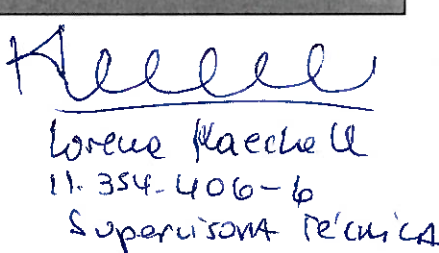 Lorena Maechell
11.354.406-6
Supervisora Técnica